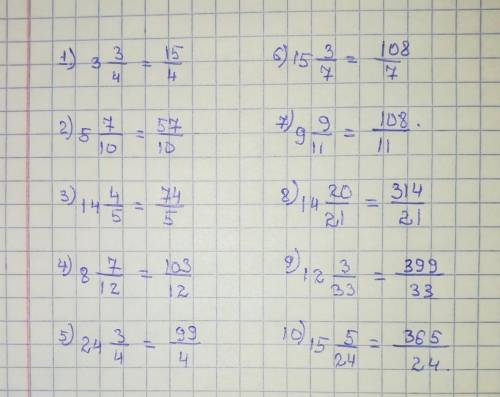 1) 3 3/4 = 15/4
2) 5 7/10 = 57/10
3) 14 4/5 = 74/5
4) 8 7/12 = 103/12
5) 24 3/4 = 99/4
6) 15 3/7 = 108/7
7) 9 9/11 = 108/11.
8) 14 20/21 = 314/21
9) 12 3/33 = 399/33
10) 15 5/24 = 365/24.